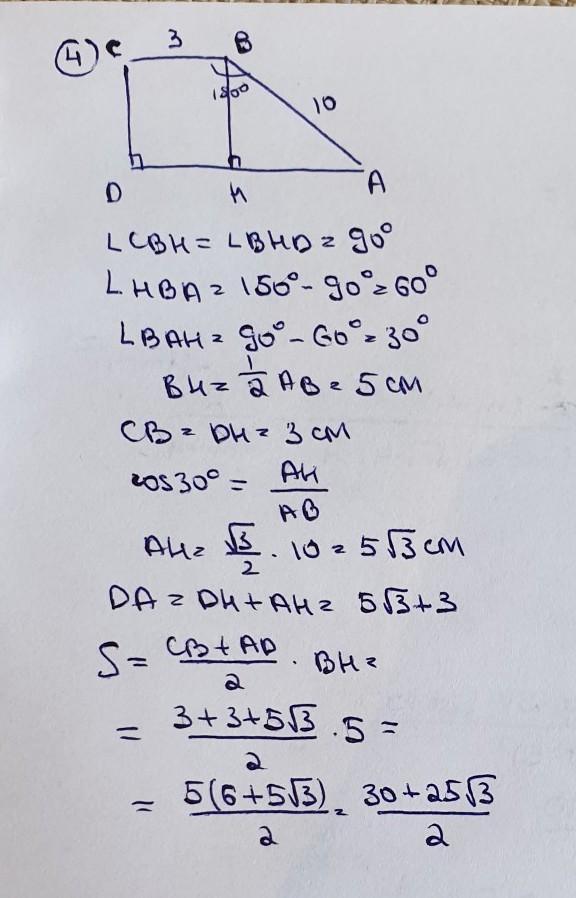 4) C 3 B
150°
10
D H A
∠CBH = ∠BHD = 90°
∠HBA = 150° - 90° = 60°
∠BAH = 90° - 60° = 30°
BH = 1/2 AB = 5 см
CB = DH = 3 см
cos30° = AH/AB
AH = √3/2 · 10 = 5√3 см
DA = DH + AH = 5√3 + 3
S = (CB + AD)/2 · BH =
= (3 + 3 + 5√3)/2 · 5 =
= 5(6 + 5√3)/2 = (30 + 25√3)/2